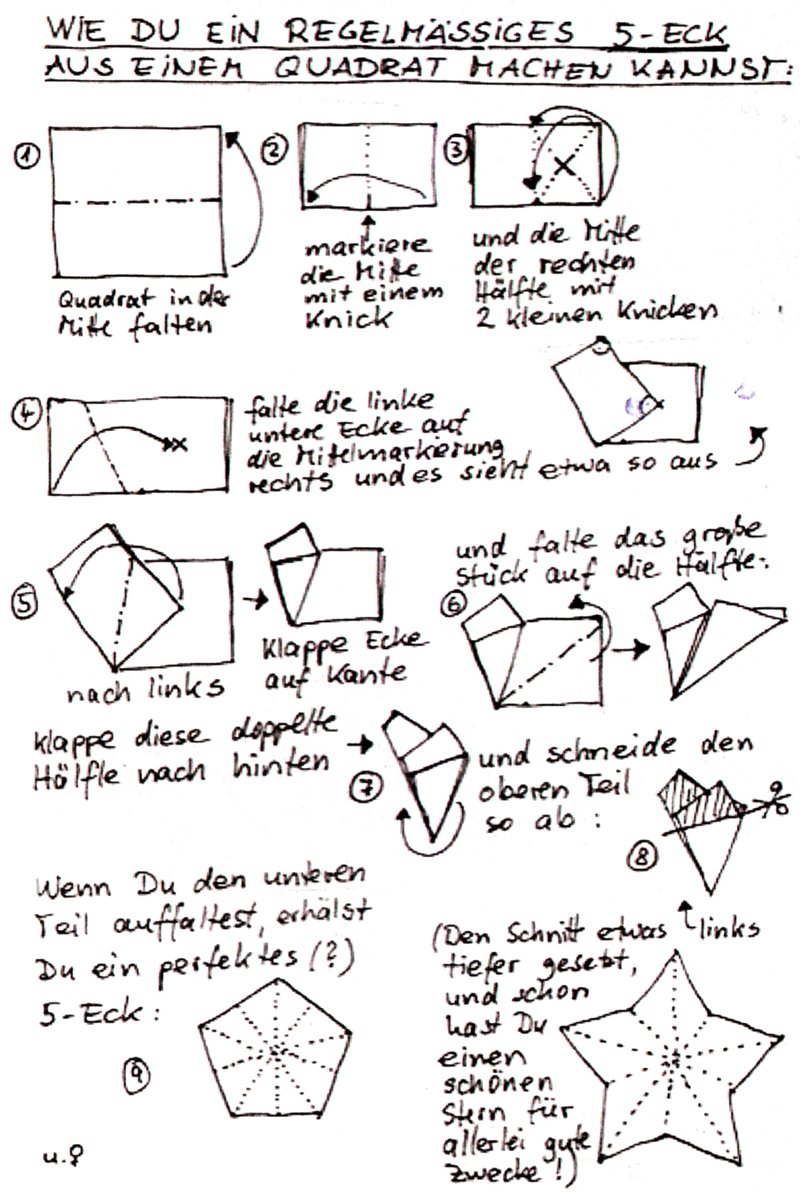 WIE DU EIN REGELMÄSSIGES 5-ECK
AUS EINEM QUADRAT MACHEN KANNST:
1
Quadrat in der
Mitte falten
2
markiere
die Mitte
mit einem
Knick
3
und die Mitte
der rechten
Hälfte mit
2 kleinen Knicken
4
falte die linke
untere Ecke auf
die Mittelmarkierung
rechts und es sieht etwa so aus
5
nach links
klappe Ecke
auf Kante
und falte das große
Stück auf die Hälfte:
6
klappe diese doppelte
Hälfte nach hinten
7
und schneide den
oberen Teil
so ab:
8
Wenn Du den unteren
Teil auffaltest, erhälst
Du ein perfektes (?)
5-Eck:
9
(Den Schnitt etwas links
tiefer gesetzt,
und schon
hast Du
einen
schönen
Stern für
allerlei gute
Zwecke!)